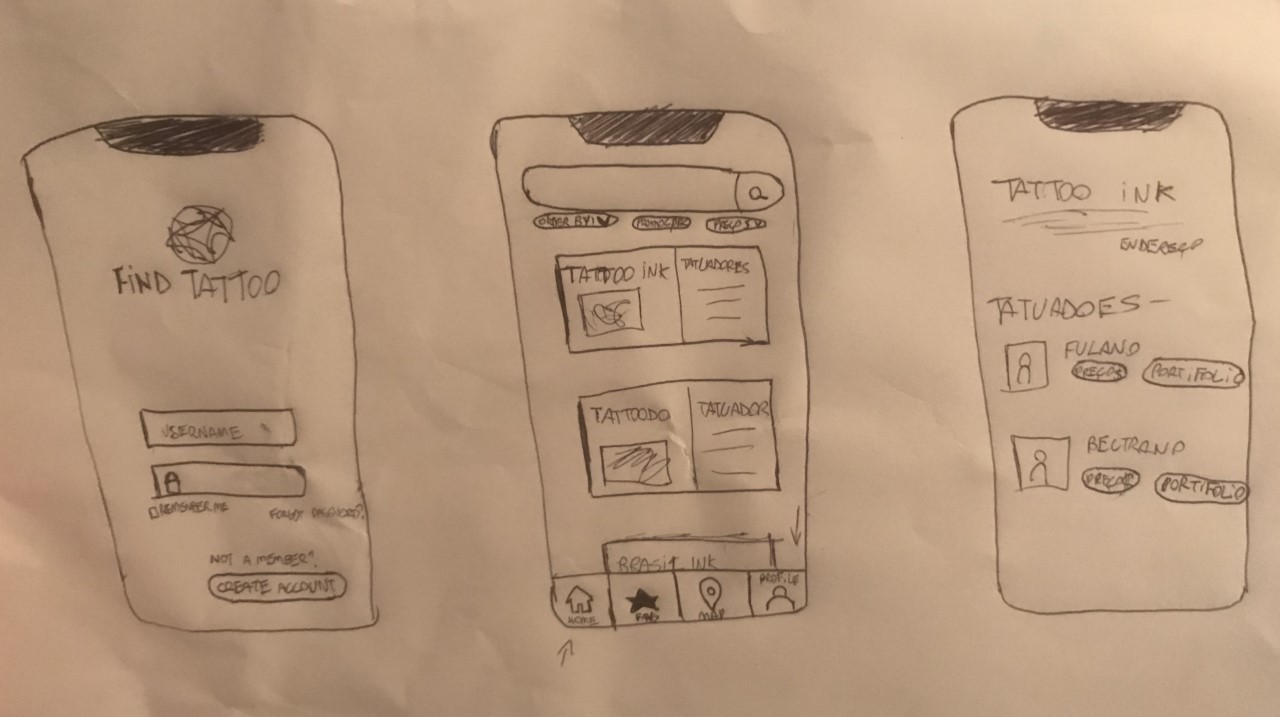 FIND TATTOO
USERNAME
REMEMBER ME
FORGOT PASSWORD?
NOT A MEMBER?
CREATE ACCOUNT
ORDER BY
PREÇO $
TATTOO INK
TATUADORES
TATTOODO
TATUADOR
BRASIL INK
HOME
FAVS
MAP
PROFILE
TATTOO INK
ENDEREÇO
TATUADOES -
FULANO
PREÇOS
PORTIFOLIO
BELTRANO
PREÇOS
PORTIFOLIO